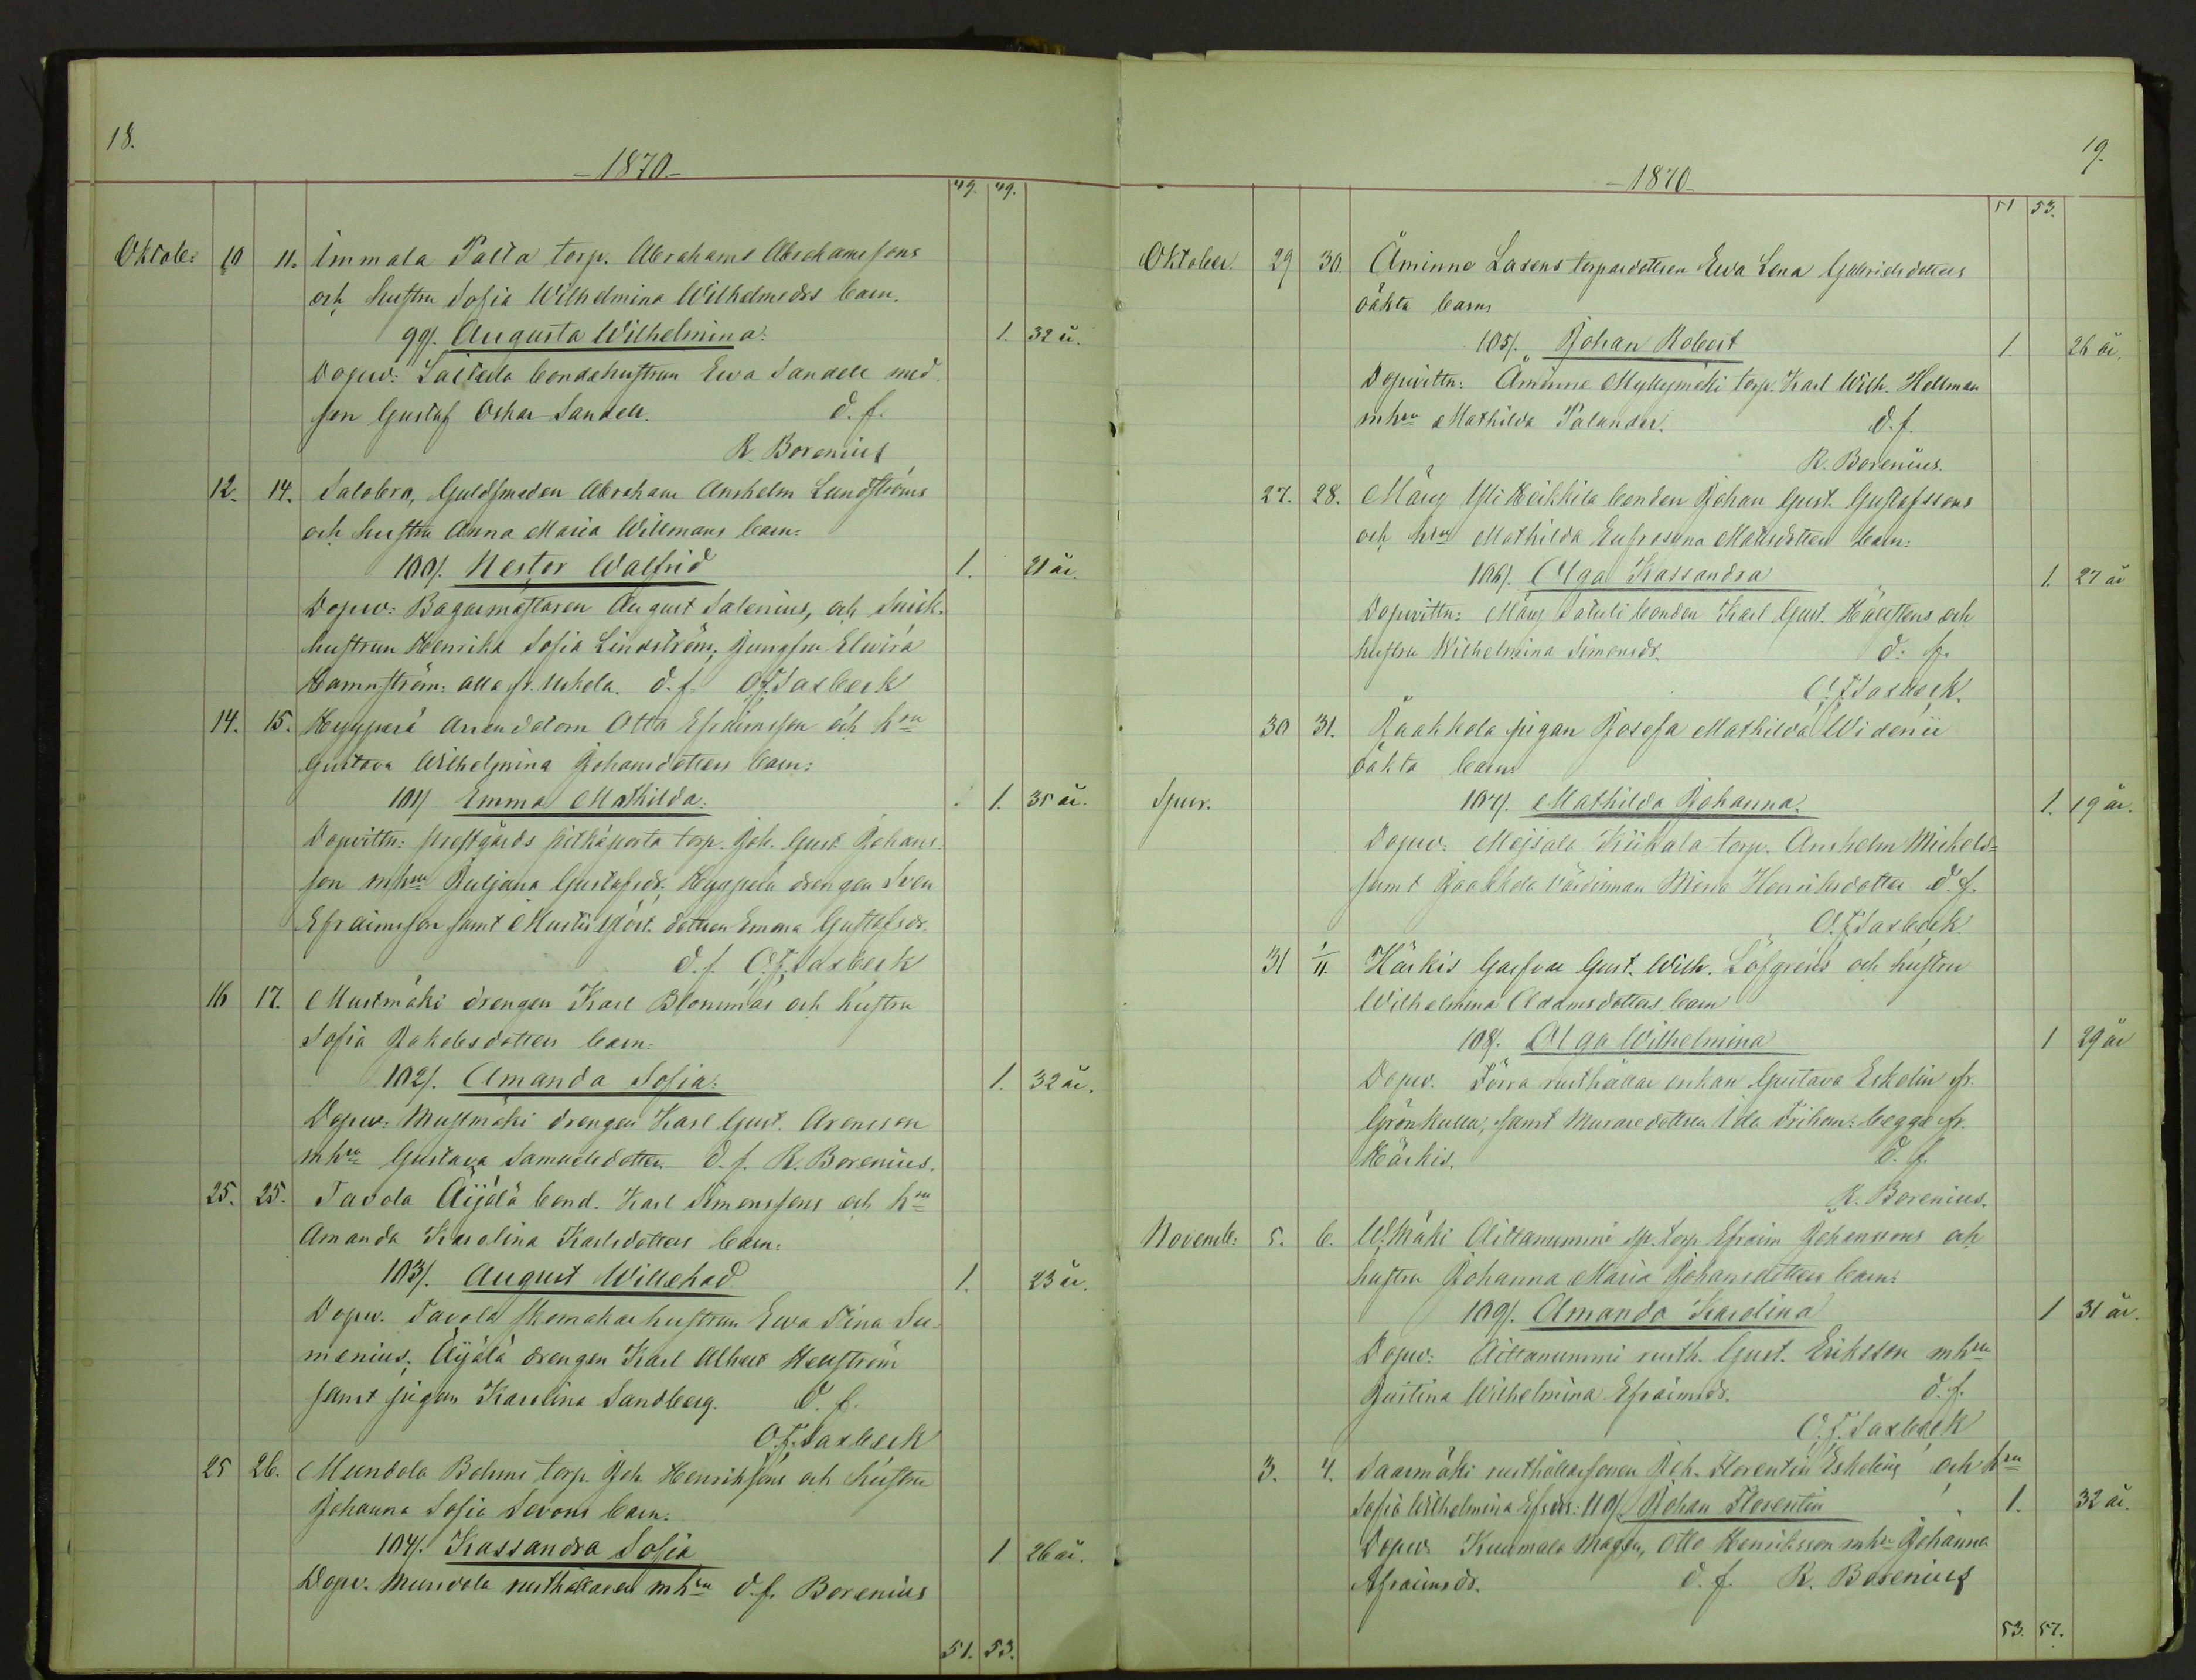 18.
-1870.-
49. 49.
Oktob: 10 11. Immala Palta torp. Abrahams Abrahamssons
och hustru Sofia Wilhelmina Wilhelmsdrs barn.
99/. Augusta Wilhelmina: 1. 32 år.
Dopw: bondehustrun Ewa Sandell med
son Gustaf Oskar Sandell. d. f.
R. Borenius
12. 14. Salobro, Guldsmeden Abraham Anshelm Lundströms
och hustru Anna Maria Willmans barn:
100/. Nestor Walfrid 1. 21 år.
Dopw: Bagarmästaren August Salenius, och Snick.
hustrun Henrika Sofia Lindström, Jungfru Elwira
Hamnström: alla fr. Uskela. d. f. O.F. Saxbeck
14. 15. Hyyperä Arrendatorn Otto Efraimsson och hru
Gustava Wilhelmina Johansdotters barn:
101/ Emma Mathilda. 1. 35 år.
Dopvittn: prestgårds torp. Joh. Gust. Johans
son mhru Juljana Gustafsdr; Hyyperä drengen Sven
Efraimsson samt dottren Emma Gustafsdr.
d. f. O.F. Saxbeck
16 17. Mustmäki drengen Karl Blommas och hustru
Sofia Jakobsdotters barn:
102/. Amanda Sofia: 1. 32 år.
Dopw: Mustmäki drengen Karl Gust. Aronsson
mhru Gustava Samuelsdotter d. f. R. Borenius.
25. 25. Tavola Äijälä bond. Karl Simonssons och hru
Amanda Karolina Karlsdotters barn:
103/. August Willehad 1. 23 år.
Dopw. Tavola skomakarhustrun Ewa Stina Su-
menius; Äijälä drengen Karl Albert Hellström
samt pigan Karolina Sandberg. d. f.
O.F. Saxbeck
25 26. Mundola Bohms torp. Joh. Henrikssons och hustru
Johanna Sofia Sevons barn:
104/. Kassandra Sofia 1 26 år.
Dopw. Mundola rusthållaren mhru d. f. Borenius
51. 53.
19.
-1870-
51 53.
Oktober. 29 30. Åminne Lasens torparedottren Ewa Lena Gabrielsdotters
oäkta barn
105/. Johan Robert 1. 26 år.
Dopvittn: Åminne Myllymäki torp. Karl Wilh. Hellman
mhru Mathilda Palander. d. f.
R. Borenius.
27. 28. Märy Yli Heikkilä bonden Johan Gust. Gustafssons
och hru Mathilda Eufrosyna Mattsdotters barn:
106/. Olga Kassandra 1. 27 år
Dopvittn: Märy Satuli bonden Karl Gust. och
hustru Wilhelmina Simonsdr. d. f.
O.F. Saxbeck.
30 31. Jaakkola pigan Josefa Mathilda Widenii
oäkta barn:
Spur. 107/. Mathilda Johanna. 1. 19 år.
Dopw: Mejsala Kiikala torp. Anshelm Mickels=
samt Jaakkola värdinnan Mina Henriksdotter d. f.
O.F. Saxbeck
31 1/11. Härkis Garfvar Gust. Wilh. Löfgrens och hustru
Wilhelmina Adamsdotters barn
108/. Olga Wilhelmina 1 29 år
Dopw. Förra rusthållar enkan Gustava Eskolin fr.
Grönkulla, samt Muraredottren Ida Friman: begge fr.
Härkis. d. f.
R. Borenius.
Novemb: 5. 6. W:mäki Aittanummi sp. torp. Efraim Johanssons och
hustru Johanna Maria Johansdotters barn:
109/. Amanda Karolina 1 31 år.
Dopw: Aittanummi rusth. Gust. Eriksson mhru
Justina Wilhelmina Efraimsdr. d. f.
O.F. Saxbeck
3. 4. Saarmäki rusthållarsonen Joh. Florentin Eskolins och hru
Sofia Wilhelmina Efrdrs: 110/. Johan Florentin 1. 32 år.
Dopw. Kuumala Otto Henriksson mhru Johanna
Efraimsdr. d. f. R. Borenius
53. 57.